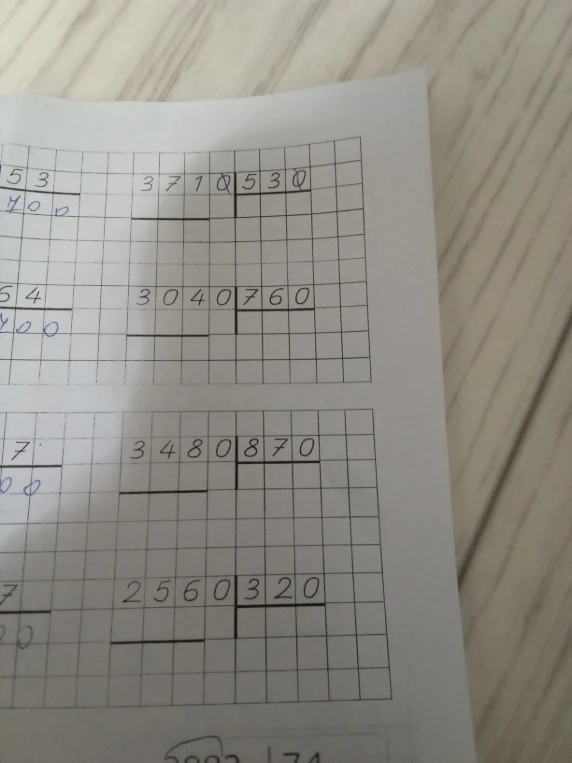 53
3710 530
700
64
3040 760
700
7
3480 870
00
7
2560 320
00
74